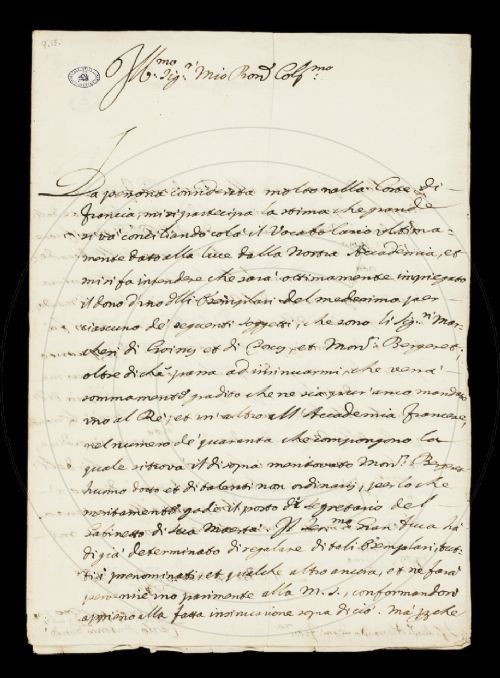 Ill.mo Sig.r Mio Pron. Col.mo
Da persona considerata molto nella Corte di
Francia, mi si partecipa la stima che grande
si và conciliando colà il Vocabolario ultima-
mente dato alla luce dalla Nostra Accademia, et
mi si fa intendere che sarà ottimamente impiegato
il dono d'uno delli Esemplari del medesimo, per
ciascuno de seguenti soggetti, che sono li Sig.ri Mar-
chesi di et di et Mons.r Bergeret,
oltre di che passa ad insinuarmi, che verrà
sommamente gradito che ne sia pur anco mandato
uno al Rè, et un altro all'Accademia Francese,
nel numero de quaranta che compongono la
quale si trova il di sopra mentovato Mons.r Bergeret
huomo dotto et di talenti non ordinarij, per lo che
meritamente gode il posto di segretario del
Gabinetto di Sua Maestà. Il Ser.mo Gran Duca hà
di già determinato di regalare di tali Esemplari, tut-
ti i prenominati, et qualche altro ancora, et ne farà
pervenire uno parimente alla M. S., conformandosi
appieno alla fatta insinuazione sopra di ciò. Mà